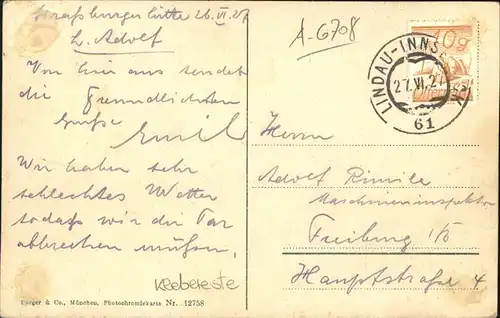 Strassburger Hütte 26. VI. 27
L. Adolf
Von hier aus sendet
die Freundlichsten
Grüße Emil
Wir haben sehr
schlechtes Wetter
sodass wir die Tur
abbrechen müssen.
Klebereste
Purger & Co., München, Photochromiekarte Nr. 12758
A-6708
10g
LINDAU-INNS
27.VI.27
61
Herrn
Adolf Rimile
Maschineninspektor
Freiburg i/B
Hauptstraße 4